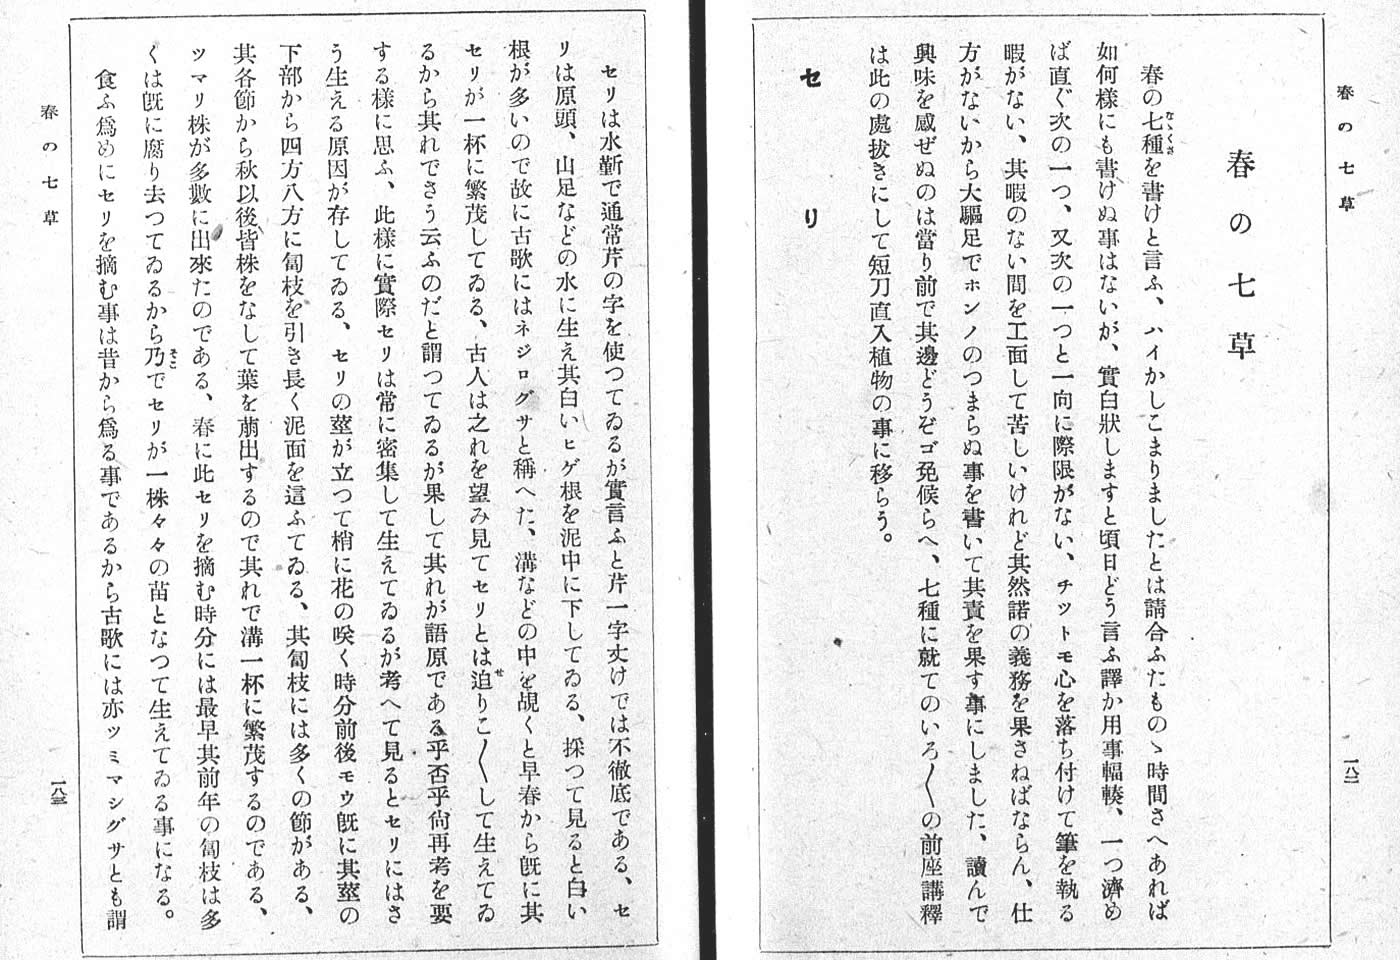 春の七草
一八二
春の七草
春の七種を書けと言ふ、ハイかしこまりましたとは請合ふたものゝ時間さへあれば
なゝくさ
如何樣にも書けぬ事はないが、實白狀しますと頃日どう言ふ譯か用事輻輳、一つ濟め
ば直ぐ次の一つ、又次の一つと一向に際限がない、チットモ心を落ち付けて筆を執る
暇がない、其暇のない間を工面して苦しいけれど其然諾の義務を果さねばならん、仕
方がないから大驅足でホンノのつまらぬ事を書いて其責を果す事にしました、讀んで
興味を感ぜぬのは當り前で其邊どうぞゴ免候らへ、七種に就てのいろ〱の前座講釋
は此の處拔きにして短刀直入植物の事に移らう。
セリ
セリは水斳で通常芹の字を使つてゐるが實言ふと芹一字丈けでは不徹底である、セ
リは原頭、山足などの水に生え其白いヒゲ根を泥中に下してゐる、採つて見ると白い
根が多いので故に古歌にはネジログサと稱へた、溝などの中を覘くと早春から旣に其
セリが一杯に繁茂してゐる、古人は之れを望み見てセリとは迫りこ〱して生えてゐ
せ
るから其れでさう云ふのだと謂つてゐるが果して其れが語原である乎否乎尙再考を要
する樣に思ふ、此樣に實際セリは常に密集して生えてゐるが考へて見るとセリにはさ
う生える原因が存してゐる、セリの莖が立つて梢に花の咲く時分前後モウ旣に其莖の
下部から四方八方に匐枝を引き長く泥面を這ふてゐる、其匐枝には多くの節がある、
其各節から秋以後皆株をなして葉を萠出するので其れで溝一杯に繁茂するのである、
ツマリ株が多數に出來たのである、春に此セリを摘む時分には最早其前年の匐枝は多
くは旣に腐り去つてゐるから乃でセリが一株々々の苗となつて生えてゐる事になる。
そこ
食ふ爲めにセリを摘む事は昔から爲る事であるから古歌には亦ツミマシグサとも謂
春の七草
一八三